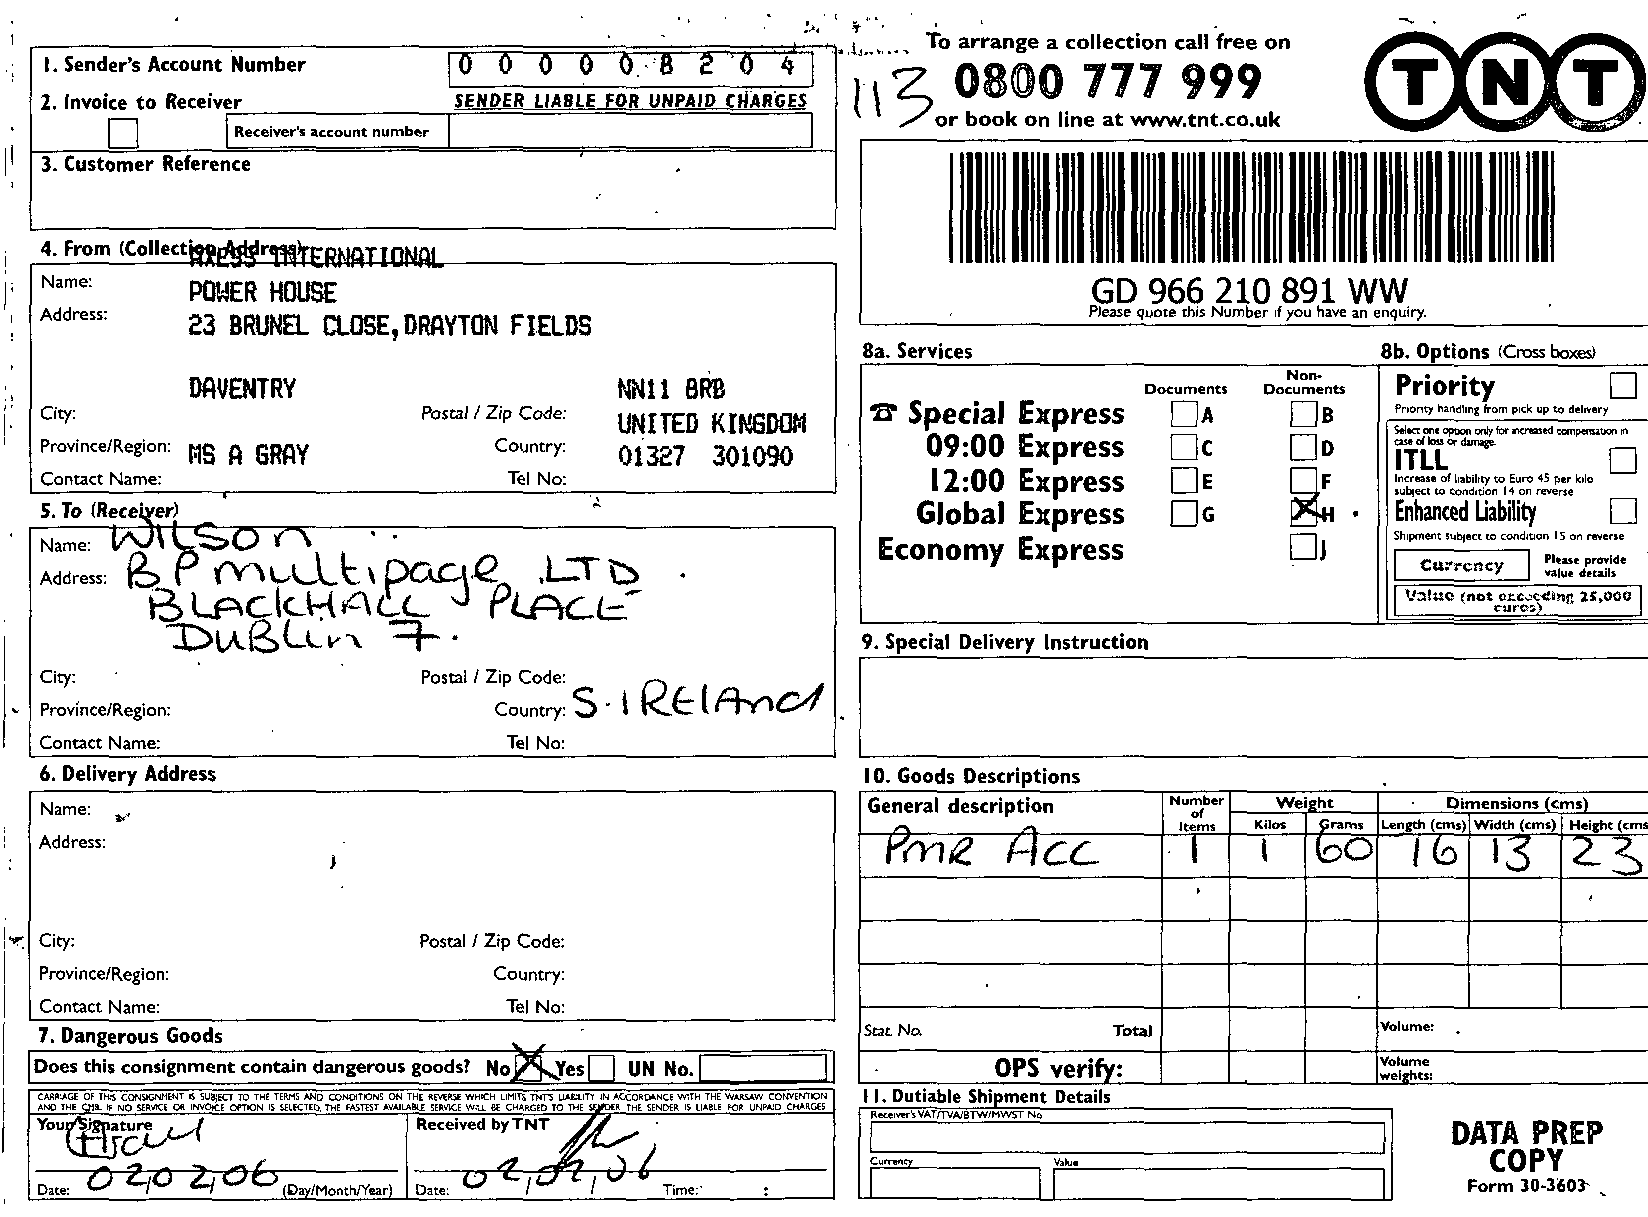 1. Sender's Account Number
0 0 0 0 0 8 2 0 4
2. Invoice to Receiver
SENDER LIABLE FOR UNPAID CHARGES
Receiver's account number
3. Customer Reference
To arrange a collection call free on
113 0800 777 999
or book on line at www.tnt.co.uk
TNT
GD 966 210 891 WW
Please quote this Number if you have an enquiry.
4. From (Collection Address)
AXESS INTERNATIONAL
Name:
POWER HOUSE
Address:
23 BRUNEL CLOSE, DRAYTON FIELDS
DAVENTRY NN11 8RB
City: Postal / Zip Code:
UNITED KINGDOM
Province/Region: MS A GRAY Country: 01327 301090
Contact Name: Tel No:
5. To (Receiver)
Name: WILSON
Address: BP multipage LTD
BLACKHALL PLACE
DUBLin 7.
City: Postal / Zip Code:
Province/Region: Country: S. IRELAnd
Contact Name: Tel No:
6. Delivery Address
Name:
Address:
City: Postal / Zip Code:
Province/Region: Country:
Contact Name: Tel No:
7. Dangerous Goods
Does this consignment contain dangerous goods? No Yes UN No.
CARRIAGE OF THIS CONSIGNMENT IS SUBJECT TO THE TERMS AND CONDITIONS ON THE REVERSE WHICH LIMITS TNT'S LIABILITY IN ACCORDANCE WITH THE WARSAW CONVENTION
AND THE CMR. IF NO SERVICE OR INVOICE OPTION IS SELECTED, THE FASTEST AVAILABLE SERVICE WILL BE CHARGED TO THE SENDER THE SENDER IS LIABLE FOR UNPAID CHARGES
Your Signature Received by TNT
02,02,06 02,02,06
Date: (Day/Month/Year) Date: Time: :
8a. Services
Documents Non-Documents
Special Express A B
09:00 Express C D
12:00 Express E F
Global Express G H
Economy Express J
8b. Options (Cross boxes)
Priority
Priority handling from pick up to delivery
Select one option only for increased compensation in
case of loss or damage.
ITLL
Increase of liability to Euro 45 per kilo
subject to condition 14 on reverse
Enhanced Liability
Shipment subject to condition 15 on reverse
Currency Please provide
value details
Value (not exceeding 25,000
euros)
9. Special Delivery Instruction
10. Goods Descriptions
General description Number of Items Weight Dimensions (cms)
Kilos Grams Length (cms) Width (cms) Height (cms
PMR ACC 1 1 60 16 13 23
Stat. No. Total Volume:
OPS verify: Volume
weights:
11. Dutiable Shipment Details
Receiver's VAT/TVA/BTW/MWST No
Currency Value
DATA PREP
COPY
Form 30-3603